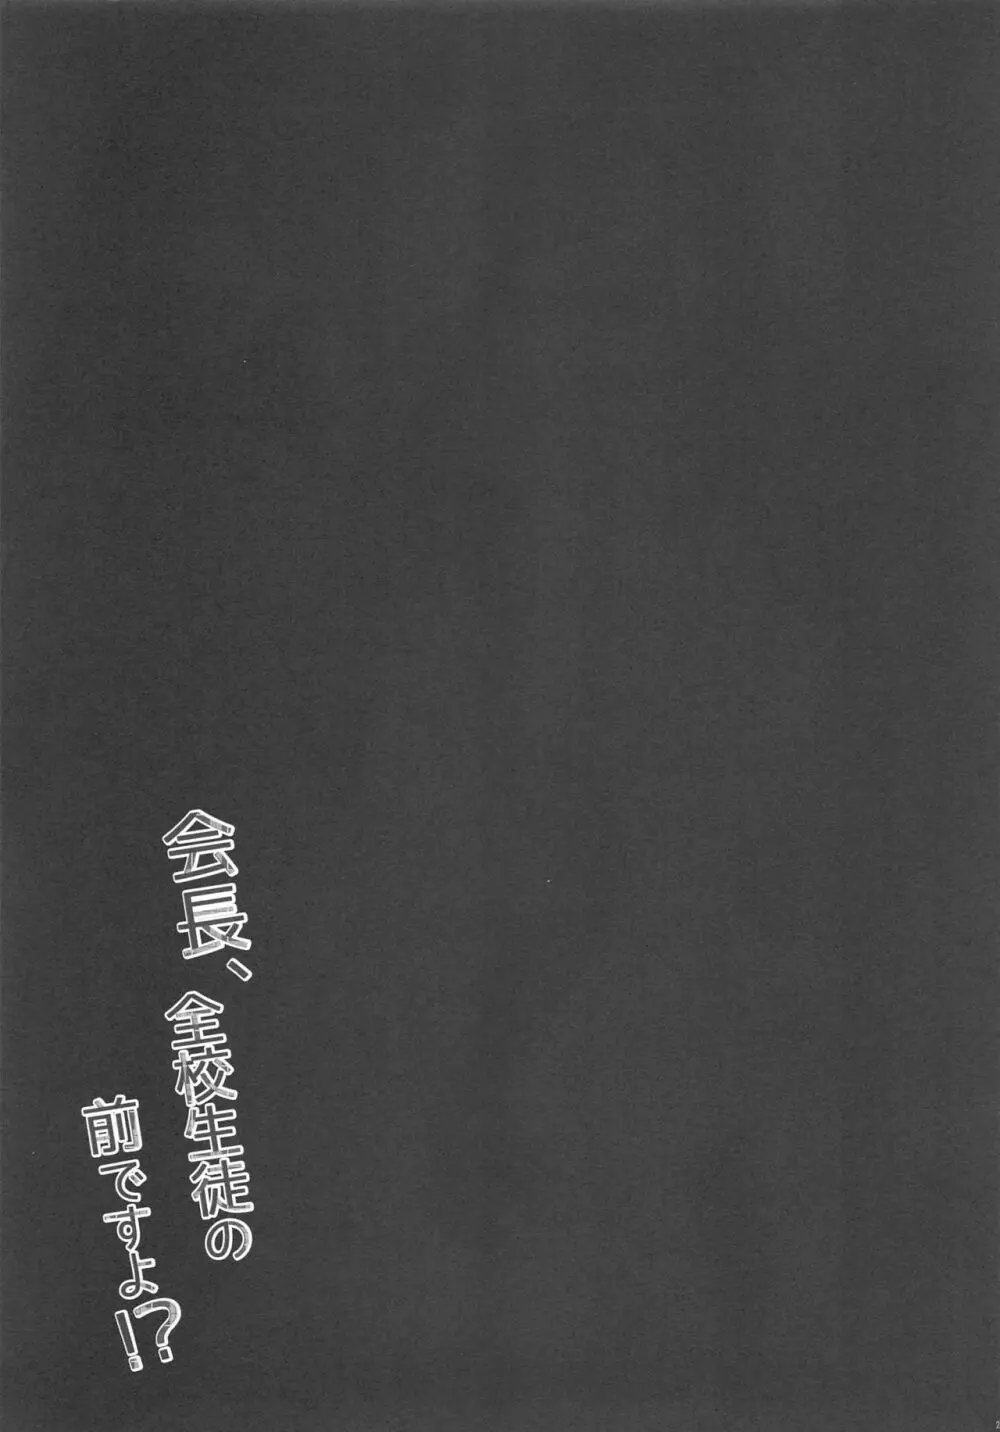 会長、全校生徒の
前ですよ!?
2